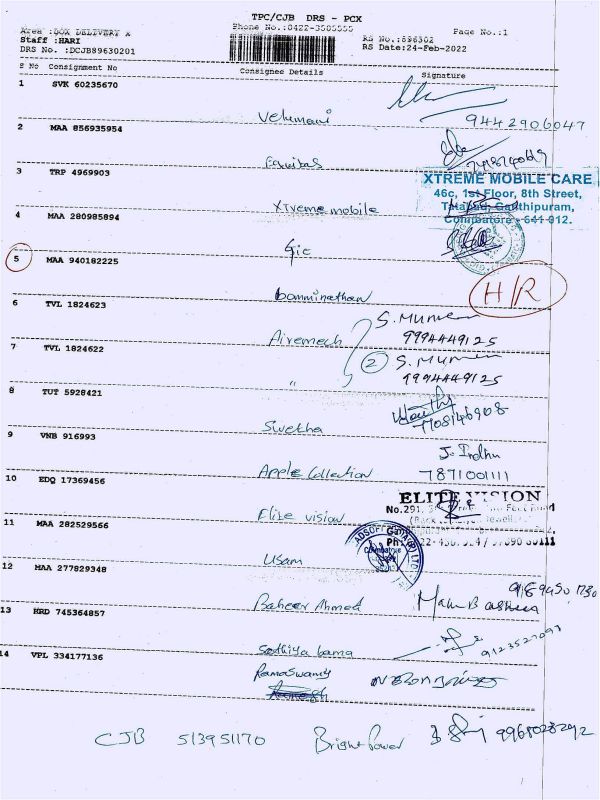 TPC/CJB DRS - PCX
Phone No.:0422-3505555
Page No.:1
Area :BOX DELIVERY
Staff :HARI
RS No.:896302
DRS No. :DCJB89630201
RS Date:24-Feb-2022
S No Consignment No Consignee Details Signature
1 SVK 60235670
Velumani 9442906047
2 MAA 856935954
Equitas
3 TRP 4969903
XTREME MOBILE CARE
46c, 1st Floor, 8th Street,
Xtreme mobile Tatabad, Gandhipuram,
Coimbatore - 641 012.
4 MAA 280985894
Gie
5 MAA 940182225
H/R
Bomminathan
6 TVL 1824623
S. Murugan
Airemech 9994449125
7 TVL 1824622
2 S. Murugan
" 9994449125
8 TUT 5928421
Swetha 7708146908
9 VNB 916993
J. Indhu
Apple Collection 7871001111
10 EDQ 17369456
ELITE VISION
No.291,
Elite vision
11 MAA 282529566
Coimbatore
Usam
12 MAA 277829348
Baheer Ahmed
13 HRD 745364857
Sathiya bama 9123527097
14 VPL 334177136
Ramaswamy
CJB 513951170 Bright Power 9965028292